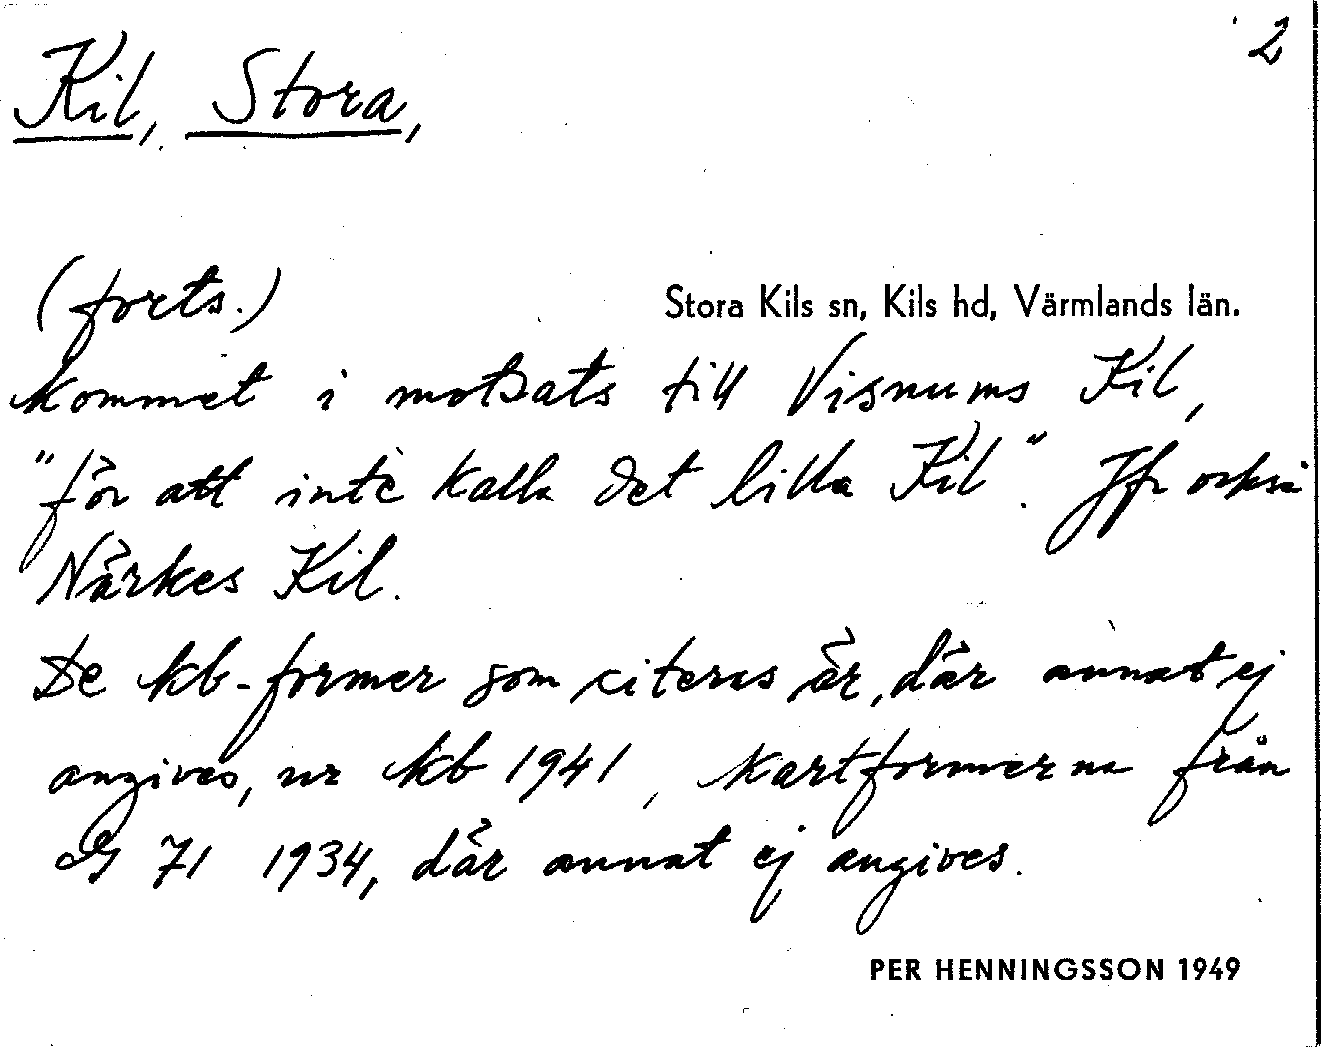 2
Kil, Stora,
(forts.)
Stora Kils sn, Kils hd, Värmlands län.
kommet i motsats till Visnums Kil,
"för att inte kalla det lilla Kil". Jfr också
Närkes Kil.
De kb-former som citeras är, där annat ej
angives, ur kb 1941, kartformerna från
G 71 1934, där annat ej angives.
PER HENNINGSSON 1949